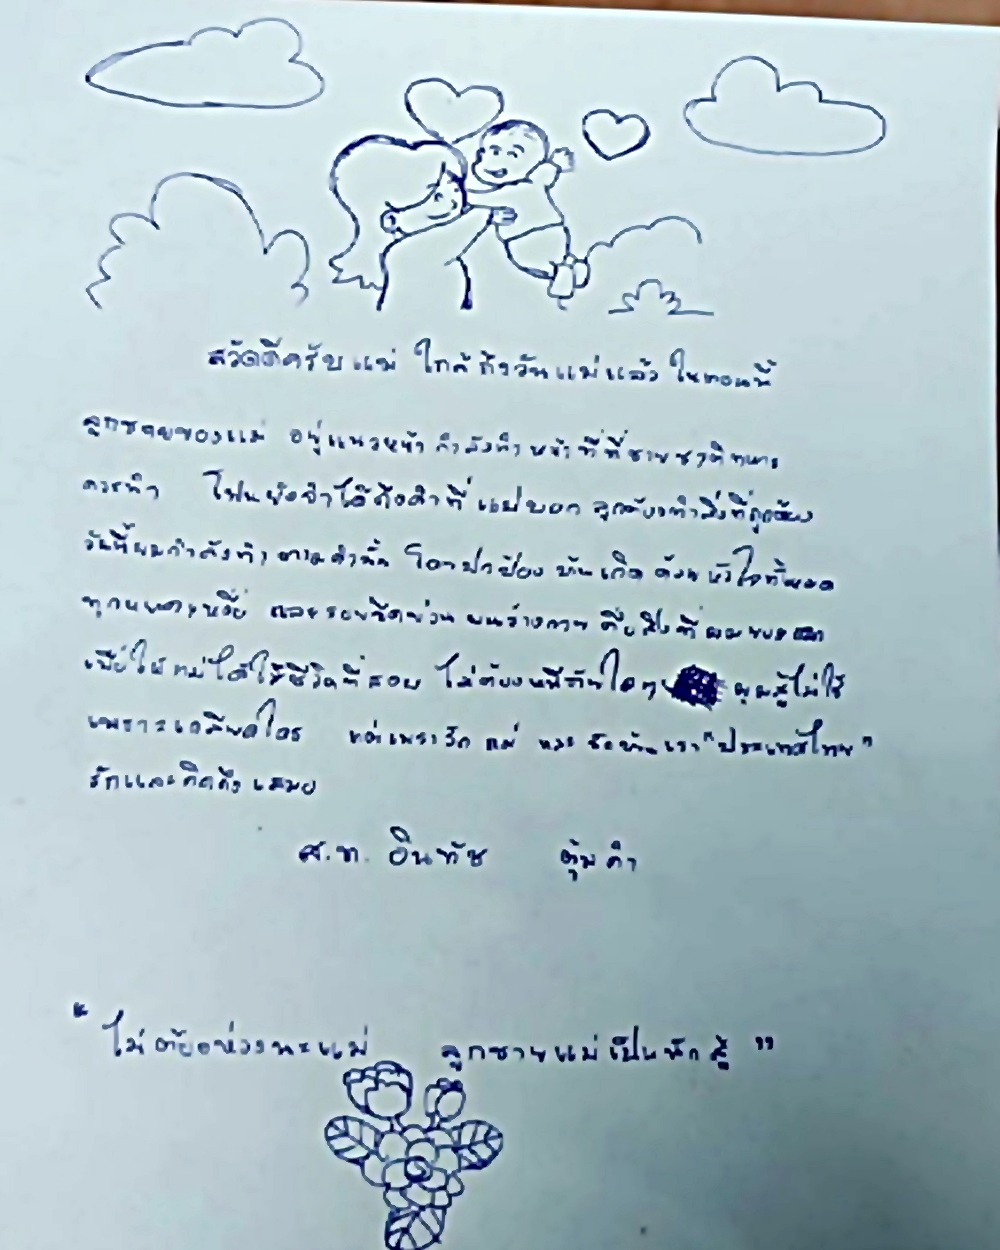 สวัดดีครับแม่ ใกล้ถึงวันแม่แล้ว ในตอนนี้
ลูกชายของแม่ อยู่แนวหน้า กำลังทำหน้าที่ที่ชายชาติทหาร
ควรทำ โฟนยังจำได้ถึงคำที่แม่บอก ลูกต้องทำสิ่งที่ถูกต้อง
วันนี้ผมกำลังทำตามคำนั้น โดยปกป้องบ้านเกิดด้วยหัวใจทั้งหมด
ทุกหยาดเหงื่อ และรอยขีดข่วนบนร่างกาย คือสิ่งที่ผมยอมแลก
เพื่อให้แม่ได้ใช้ชีวิตที่สงบ ไม่ต้องหนีภัยใดๆ ผมสู้ไม่ใช่
เพราะเกลียดใคร แต่เพราะรักแม่ และรักบ้านเรา "ประเทศไทย"
รักและคิดถึงเสมอ
ส.ท. อินทัช ตุ้มคำ
"ไม่ต้องห่วงนะแม่ ลูกชายแม่เป็นนักสู้"